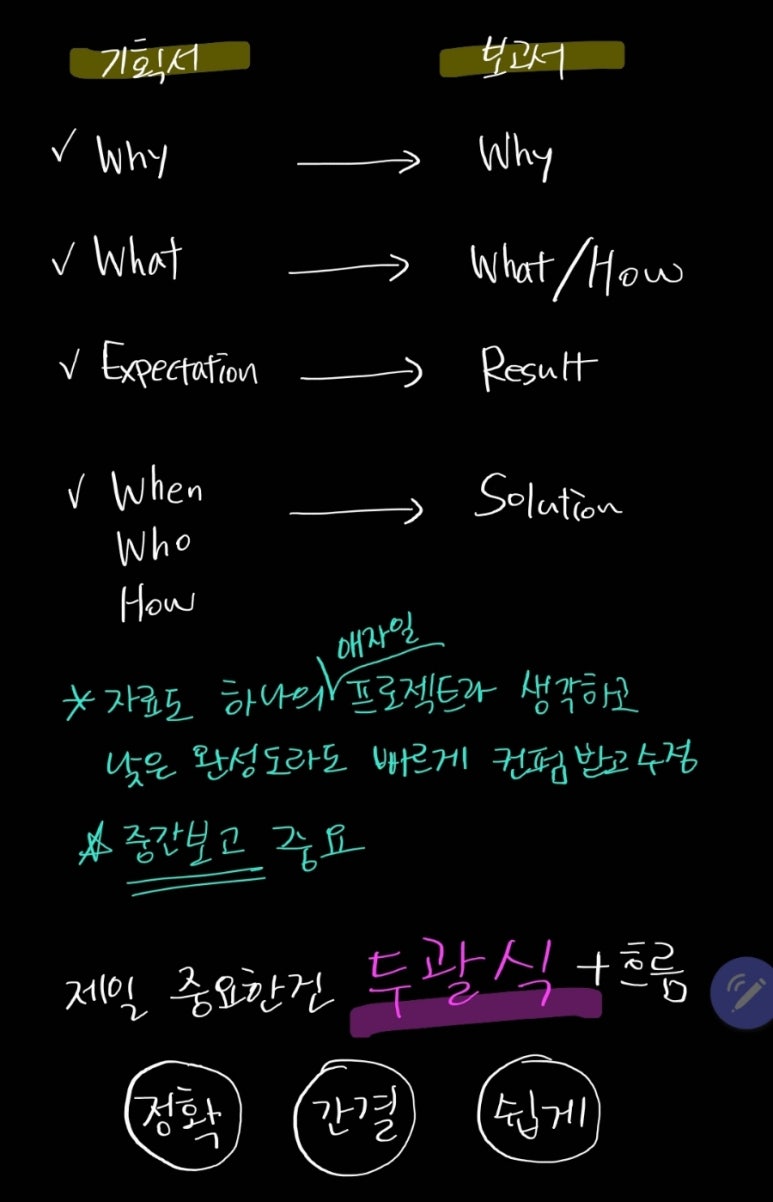 기획서 보고서
✓ Why → Why
✓ What → What/How
✓ Expectation → Result
✓ When → Solution
Who
How
애자일
* 자료도 하나의 프로젝트라 생각하고
낮은 완성도라도 빠르게 컨펌받고 수정
☆ 중간보고 중요
제일 중요한건 두괄식 + 흐름
정확 간결 쉽게